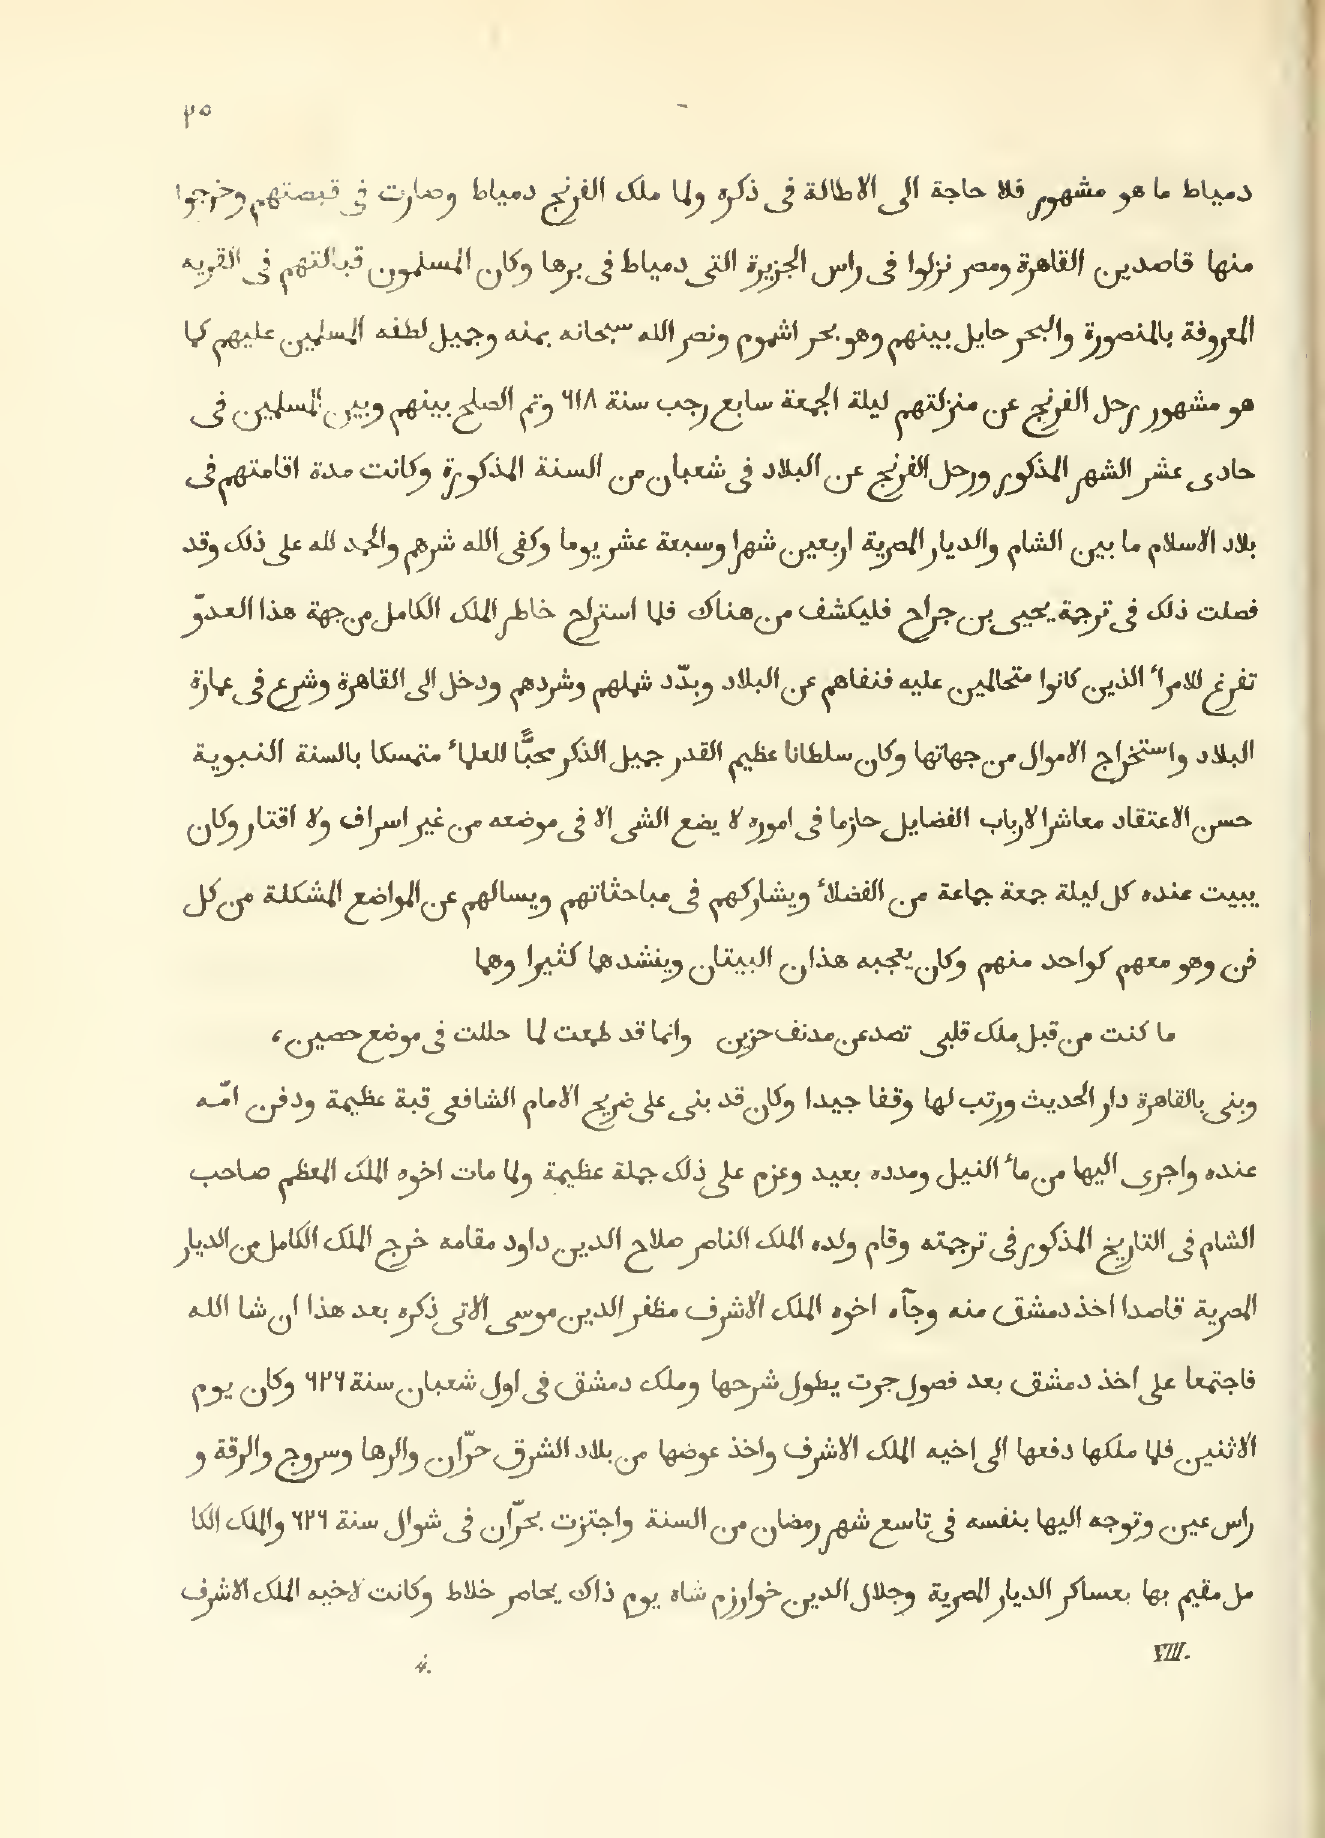 ٢٥
دمياط ما هو مشهور فلا حاجة الى الاطالة فى ذكره ولما ملك الفرنج دمياط وصارت فى قبصتهم وخرجوا
منها قاصدين القاهرة ومصر نزلوا فى راس الجزيرة التى دمياط فى برها وكان المسلمون قبالتهم فى القريه
المعروفة بالمنصورة والبحر حايل بينهم وهو بحر اشموم ونصر الله سبحانه بمنه وجميل لطفه المسلمين عليهم كما
هو مشهور رحل الفرنج عن منزلتهم ليلة الجمعة سابع رجب سنة ٦١٨ وتم الصلح بينهم وبين المسلمين فى
حادى عشر الشهر المذكور ورحل الفرنج عن البلاد فى شعبان من السنة المذكورة وكانت مدة اقامتهم فى
بلاد الاسلام ما بين الشام والديار المصرية اربعين شهرا وسبعة عشر يوما وكفى الله شرهم والحمد لله على ذلك وقد
فصلت ذلك فى ترجمة يحيى بن جراح فليكشف من هناك فلما استراح خاطر الملك الكامل من جهة هذا العدوّ
تفرغ للامرأ الذين كانوا متحالمين عليه فنفاهم عن البلاد وبدّد شملهم وشردهم ودخل الى القاهرة وشرع فى عمارة
البلاد واستخراج الاموال من جهاتها وكان سلطانا عظيم القدر جميل الذكر محبًّا للعلمأ متمسكا بالسنة النبوية
حسن الاعتقاد معاشرا لارباب الفضايل حازما فى اموره لا يضع الشى الا فى موضعه من غير اسراف ولا اقتار وكان
يبيت عنده كل ليلة جمعة جماعة من الفضلأ ويشاركهم فى مباحثاتهم ويسالهم عن المواضع المشكلة من كل
فن وهو معهم كواحد منهم وكان يعجبه هذان البيتان وينشدهما كثيرا وهما
ما كنت من قبل ملك قلبى تصد عن مدنف حزين وانما قد طمعت لما حللت فى موضع حصين،
وبنى بالقاهرة دار الحديث ورتب لها وقفا جيدا وكان قد بنى على ضريح الامام الشافعى قبة عظيمة ودفن امّه
عنده واجرى اليها من مأ النيل ومدده بعيد وعزم على ذلك جملة عظيمة ولما مات اخوه الملك المعظم صاحب
الشام فى التاريخ المذكور فى ترجمته وقام ولده الملك الناصر صلاح الدين داود مقامه خرج الملك الكامل من الديار
المصرية قاصدا اخذ دمشق منه وجآه اخوه الملك الاشرف مظفر الدين موسى الاتى ذكره بعد هذا ان شا الله
فاجتمعا على اخذ دمشق بعد فصول جرت يطول شرحها وملك دمشق فى اول شعبان سنة ٦٢٦ وكان يوم
الاثنين فلما ملكها دفعها الى اخيه الملك الاشرف واخذ عوضها من بلاد الشرق حرّان والرها وسروج والرقة و
راس عين وتوجه اليها بنفسه فى تاسع شهر رمضان من السنة واجتزت بحرّان فى شوال سنة ٦٢٦ والملك الكا
مل مقيم بها بعساكر الديار المصرية وجلال الدين خوارزم شاه يوم ذاك يحاصر خلاط وكانت لاخيه الملك الاشرف
VIII. 4.